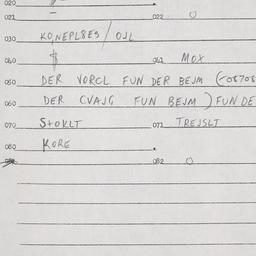 020
021 — 022 O
030 KO,NEPL8ES / OJL
040 $ 041 MOX
050 DER VORCL FUN DER BEJM (F08708
060 DER CVAJG FUN BEJM ) FUN DE
070 STOKLT 071 TREJSLT
080 KORE
082 O